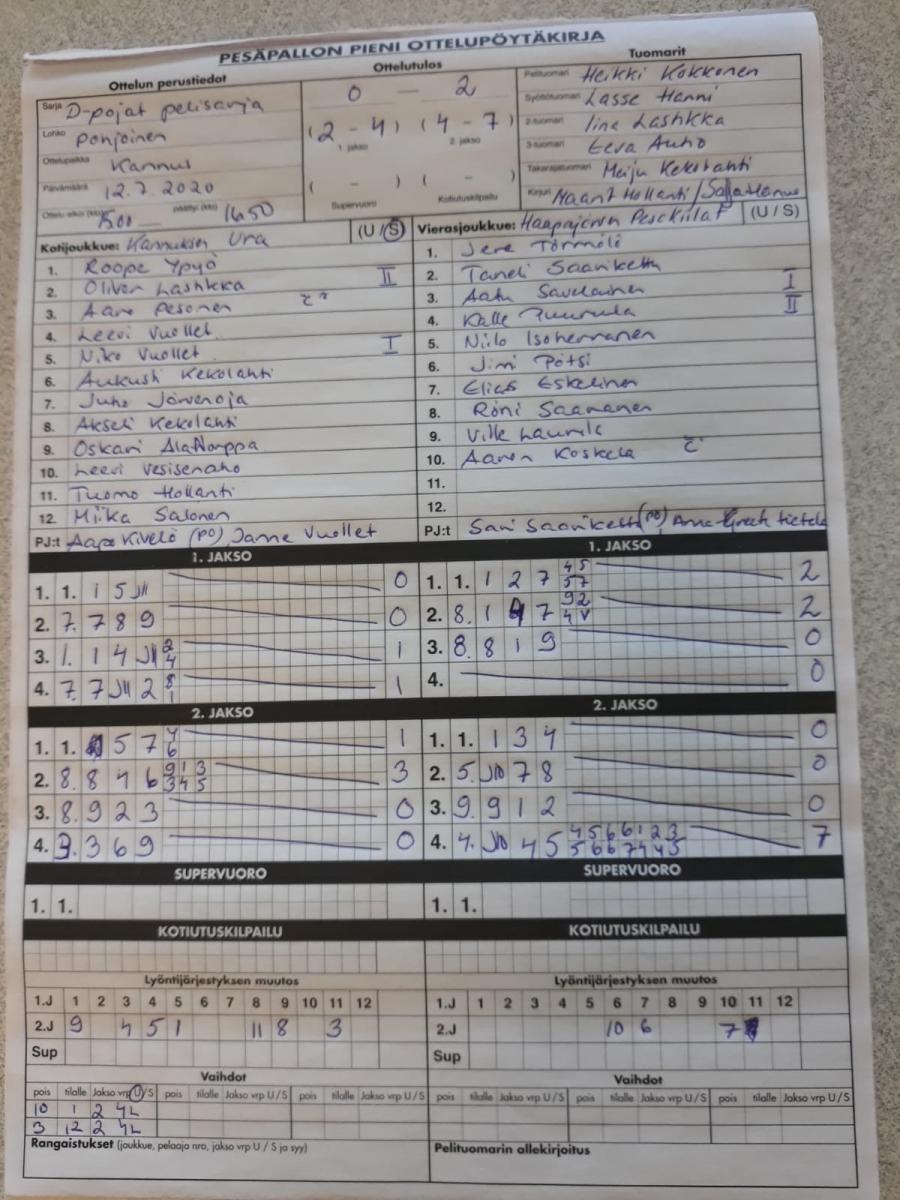 PESÄPALLON PIENI OTTELUPÖYTÄKIRJA
Ottelun perustiedot
Ottelutulos
Tuomarit
Sarja D-pojat pelisarja
Lohko Pohjoinen
Ottelupaikka Kannus
Päivämäärä 12.7.2020
Ottelu alkoi (klo) 1500 päättyi (klo) 1650
0 — 2
(2 - 4) (4 - 7)
1. jakso 2. jakso
( - ) ( - )
Supervuoro Kotiutuskilpailu
Pelituomari Heikki Kokkonen
Syöttötuomari Lasse Hanni
2-tuomari Iina Lashkka
3-tuomari Eeva Auho
Takarajatuomari Meiju Kekolahti
Kirjuri Maarit Hollanti /
Kotijoukkue: Kannuksen Ura (U / S)
1. Roope Ypyä
2. Oliver Lashkka II
3. Aaro Pesonen
4. Leevi Vuollet
5. Niko Vuollet I
6. Aukusti Kekolahti
7. Juho Järvenoja
8. Akseli Kekolahti
9. Oskari
10. Leevi Vesisenaho
11. Tuomo Hollanti
12. Miika Salonen
PJ:t Aapo Kivelä (PO) Janne Vuollet
Vierasjoukkue: Haapajärven Pesäkiilat (U / S)
1. Jere Törmälä
2. Taneli Saariketo
3. Aatu Savolainen I
4. Kalle Puurula II
5. Niilo Isoherranen
6. Jimi Pötsi
7. Elias Eskelinen
8. Roni Saaranen
9. Ville Laurila
10. Aaron Koskela
11.
12.
PJ:t Sari (PO)
1. JAKSO
1. 1. 1 5 0
2. 7. 7 8 9 0
3. 1. 1 4 2 4 1
4. 7. 7 2 8 1 1
1. JAKSO
1. 1. 1 2 7 45 57 2
2. 8. 1 7 92 4V 2
3. 8. 8 1 9 0
4. 0
2. JAKSO
1. 1. 5 7 6 1
2. 8. 8 4 6 913 345 3
3. 8. 9 2 3 0
4. 3. 3 6 9 0
2. JAKSO
1. 1. 1 3 4 0
2. 5. 7 8 0
3. 9. 9 1 2 0
4. 4. 4 5 4566123 7
SUPERVUORO
1. 1.
SUPERVUORO
1. 1.
KOTIUTUSKILPAILU
KOTIUTUSKILPAILU
Lyöntijärjestyksen muutos
1.J 1 2 3 4 5 6 7 8 9 10 11 12
2.J 9 4 5 1 11 8 3
Sup
Lyöntijärjestyksen muutos
1.J 1 2 3 4 5 6 7 8 9 10 11 12
2.J 10 6 7
Sup
Vaihdot
pois tilalle Jakso vrp U / S pois tilalle Jakso vrp U / S pois tilalle Jakso vrp U / S
10 1 2 4L
3 12 2 4L
Vaihdot
pois tilalle Jakso vrp U / S pois tilalle Jakso vrp U / S pois tilalle Jakso vrp U / S
Rangaistukset (joukkue, pelaaja nro, jakso vrp U / S ja syy)
Pelituomarin allekirjoitus